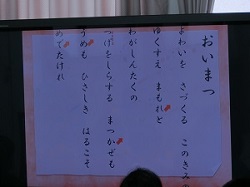 おいまつ
よわいを さづくる このきみの
ゆくすえ まもれと
わがしんたくの
つげをしらする まつかぜも
うめも ひさしき はるこそ
めでたけれ